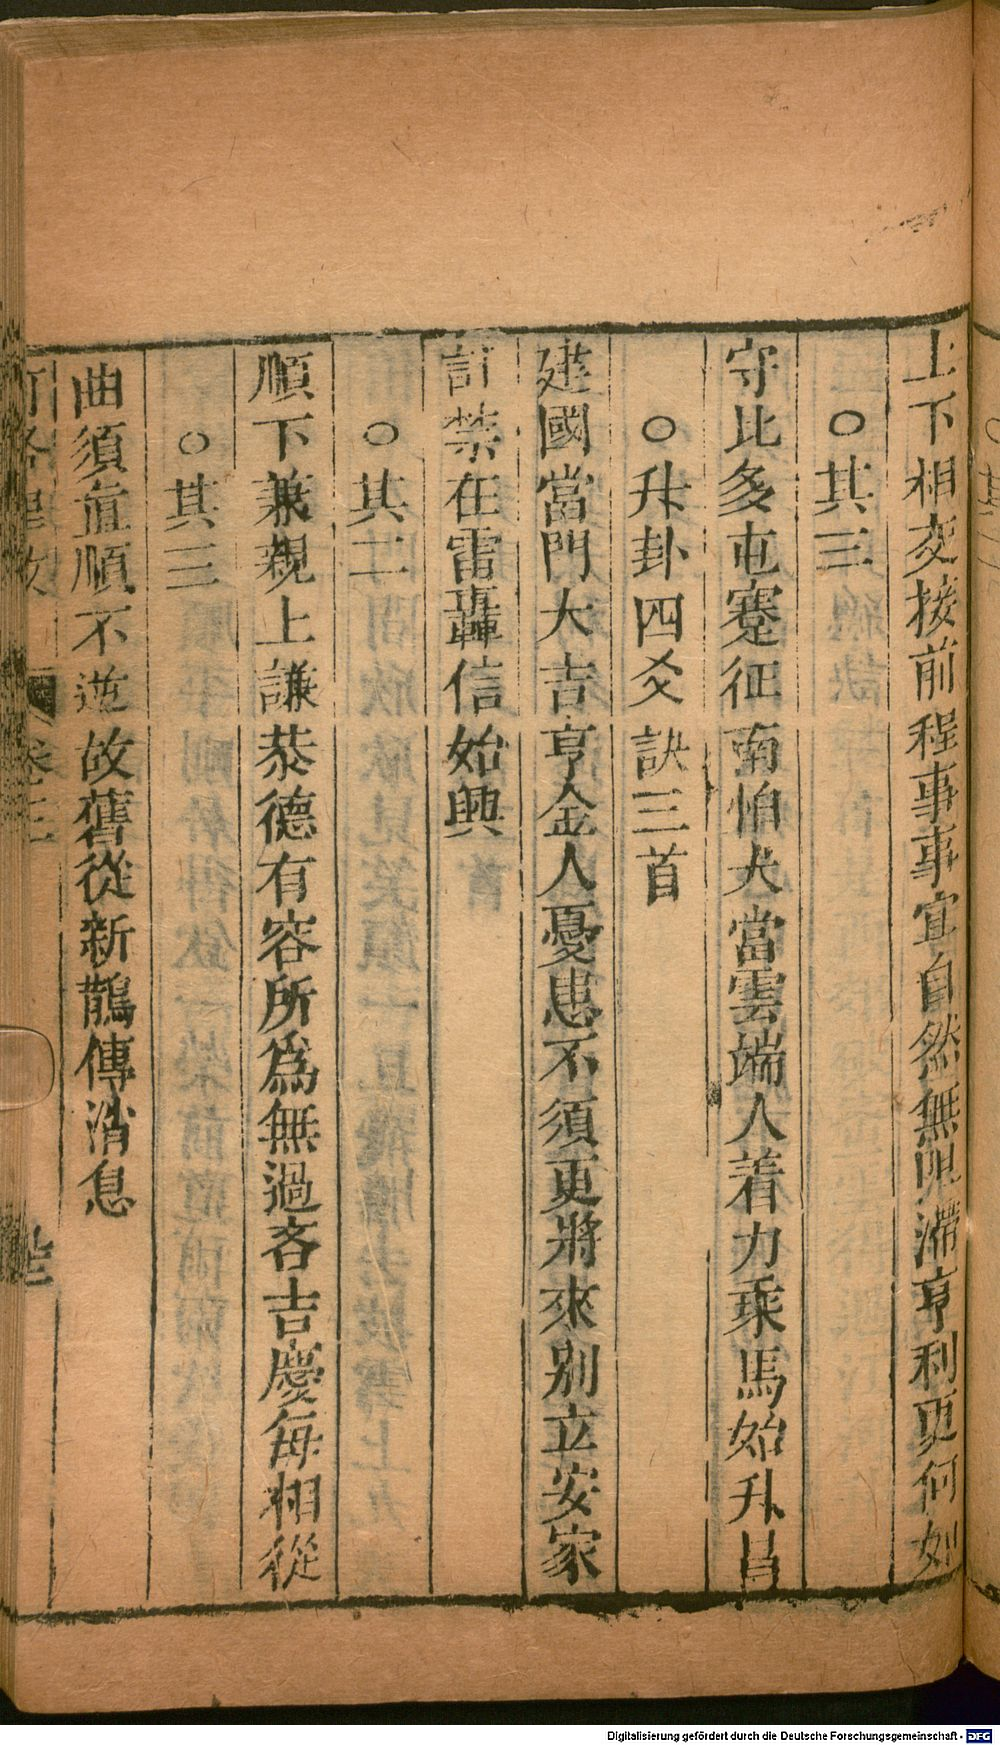 上下相交接前程事事宜自然無阻滯亨利更何如
○其三
守比多屯蹇征南怕犬當雲端人着力乘馬始升昌
○升卦四爻訣三首
建國當門大吉亨金人憂患不須更將來別立安家
計禁在雷轟信始興
○其二
順下兼親上謙恭德有容所爲無過吝吉慶每相從
○其三
曲須直順不逆故舊從新鵲傳消息
卷三
Digitalisierung gefördert durch die Deutsche Forschungsgemeinschaft - DFG